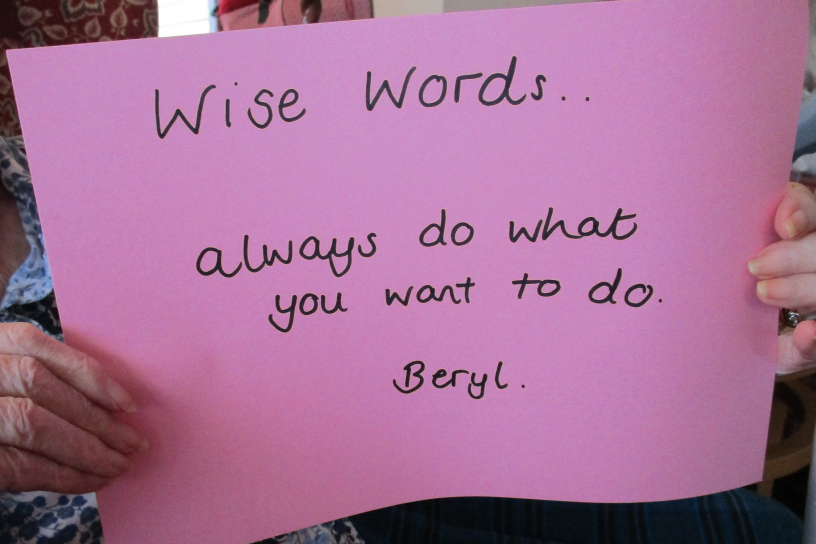 Wise Words..
always do what
you want to do.
Beryl.